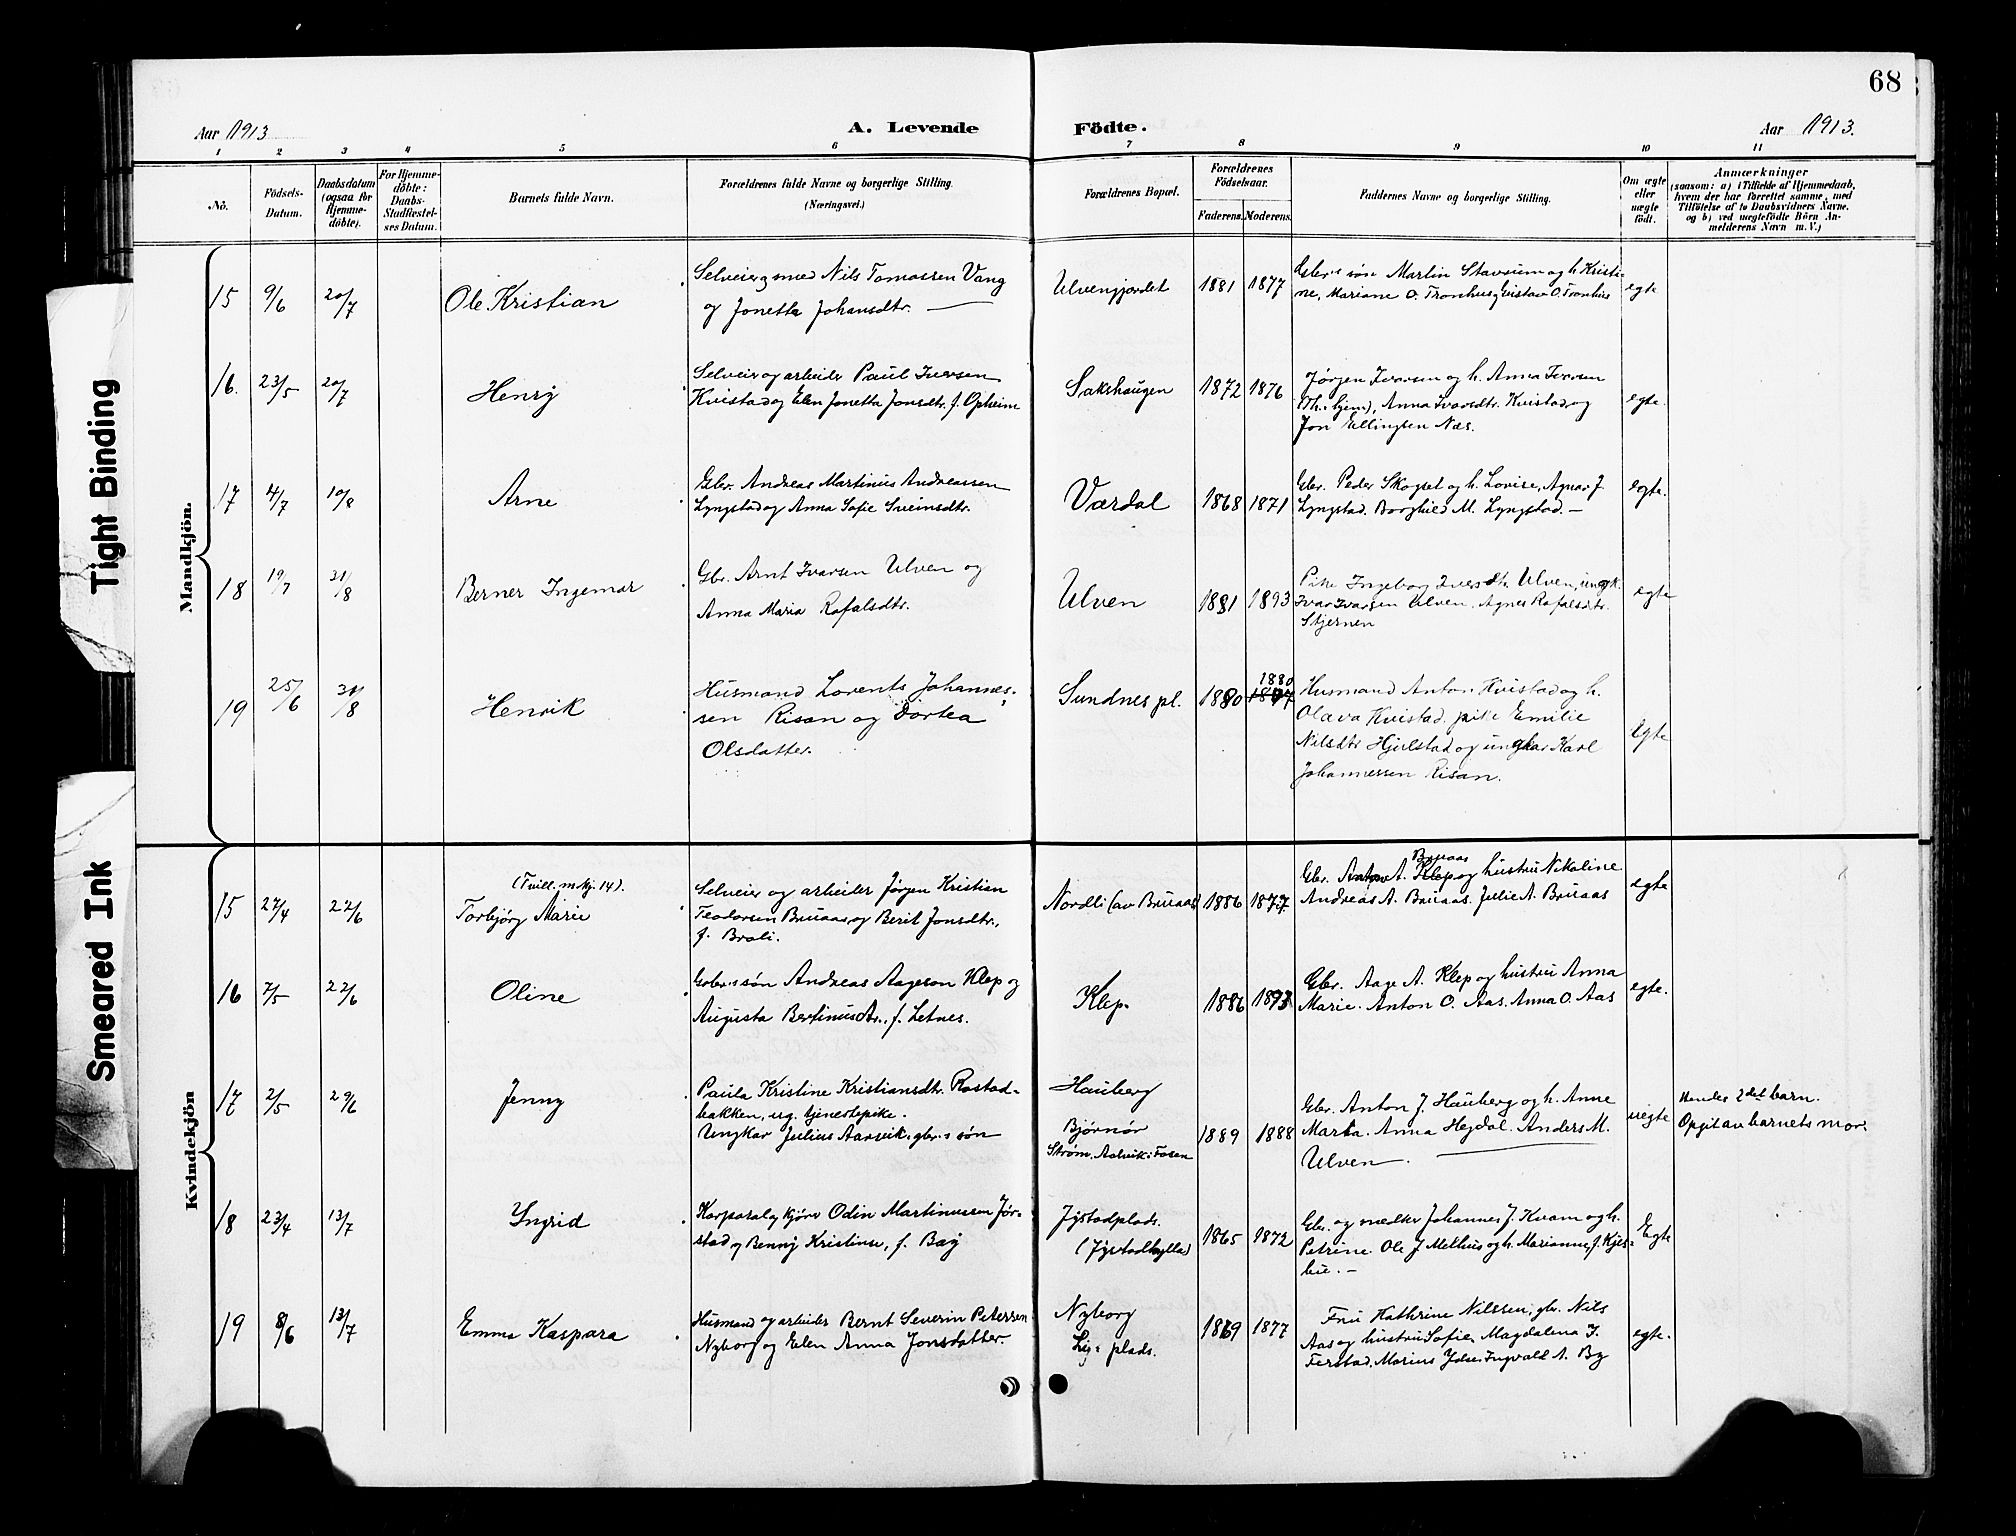 68
Aar 1913
A. Levende Födte.
Aar 1913.
1 2 3 4 5 6 7 8 9 10 11
No.
Födsels-
Datum.
Daabsdatum
(ogsaa for
Hjemme-
döbte).
For Hjemme-
döbte:
Daabs-
Stadfæstel-
ses Datum.
Barnets fulde Navn.
Forældrenes fulde Navne og borgerlige Stilling.
(Næringsvei.)
Forældrenes Bopæl.
Forældrenes
Födselsaar.
Faderens. Moderens.
Faddernes Navne og borgerlige Stilling.
Om ægte
eller
uægte
födt.
Anmærkninger
(saasom: a) i Tilfælde af Hjemmedaab,
hvem der har forrettet samme, med
Tilföielse af to Daabsvidners Navne.
og b) ved uægtefödte Börn An-
melderens Navn m. V.)
Tight Binding
Smeared Ink
Mandkjön.
15 9/6 20/7 Ole Kristian
Selveier, smed Nils Tomassen Vang
og Jonetta Johansdtr.
Ulvengjordet 1881 1877
Gbr.s søn Martin Stavsum og h. Kristi-
ne, Mariane O. Tronhus, Gustav O. Tronhus
egte
16. 23/5 20/7 Henry
Selveier og arbeider Paul Iversen
Kvistad og Elen Jonetta Jonsdtr. f. Opheim
Sakshaugen 1872 1876
Jørgen Ivarsen og h. Anna Ivarsen
Anna Ivarsdtr. Kvistad og
Jon Ellingsen Næs.
egte.
17 4/7 10/8 Arne
Gbr. Andreas Martinus Andreassen
Lyngstad og Anna Sofie Sveinsdtr.
Værdal 1868 1871
Gbr. Peder Skogset og h. Lovise, Agnar J.
Lyngstad. Borghild M. Lyngstad. —
egte.
18 19/7 31/8 Berner Ingemar
Gbr. Arnt Ivarsen Ulven og
Anna Maria Rafalsdtr.
Ulven 1881 1893
Pike Ingeborg Iversdtr. Ulven, ungk.
Ivar Ivarsen Ulven. Agnes Rafalsdtr.
Stjernen
egte
19 25/6 31/8 Henrik
Husmand Lorents Johannes-
sen Risan og Dortea
Olsdatter.
Sundnes pl. 1880 1880
Husmand Anton Kvistad og h.
Olava Kvistad, pike Emilie
Nilsdtr Hjulstad og ungkar Karl
Johannessen Risan.
Egte
Kvindekjön
15 27/4 22/6
(Tvill. m kj. 14).
Torbjørg Marie
Selveier og arbeider Jørgen Kristian
Teodorsen Bruaas, og Berit Jonsdtr.,
f. Brali.
Nordli (av Bruaas) 1886 1877
Bruaas
Gbr. Anton A. Klep og hustru Nikoline
Andreas A. Bruaas. Julie A. Bruaas
egte
16 7/5 22/6 Oline
Gbr.s søn Andreas Aageson Klep og
Augusta Bertinusdtr., f. Letnes.
Klep. 1886 1893
Gbr. Aage A. Klep og hustru Anna
Marie. Anton O. Aas. Anna O. Aas
egte.
17 2/5 29/6 Jenny
Paula Kristine Kristiansdtr. Rostad-
bakken, ug. tjenestepike.
Ungkar Julius Aarvik, gbr.s søn
Hauberg
Bjørnør
Strøm, Aarvik i Fosen
1889 1888
Gbr. Anton J. Hauberg og h. Anne
Marta. Anna Hegdal. Anders M.
Ulven.
uegte
Hendes 2det barn.
Opgit av barnets mor.
18 23/4 13/7 Yngrid
Korporal og kjører Odin Martinussen Jør-
stad og Benny Kristine, f. Bag
Jystadplads.
(Jystadhylla)
1865 1872
Gbr. og mædler Johannes J. Kvam og h.
Petrine. Ole J Melhus og h. Marianne, f. Kjes-
bu. —
Egte
19 8/6 13/7 Emma Kaspara
Husmand og arbeider Bernt Severin Petersen
Nyborg og Elen Anna Jonsdatter.
Nyborg
plads.
1869 1877
Fru Kathrine Nilssen, gbr. Nils
Aas og hustru Sofie, Magdalena J.
Ferstad, Marius Ydse, Ingvald A. By
egte.